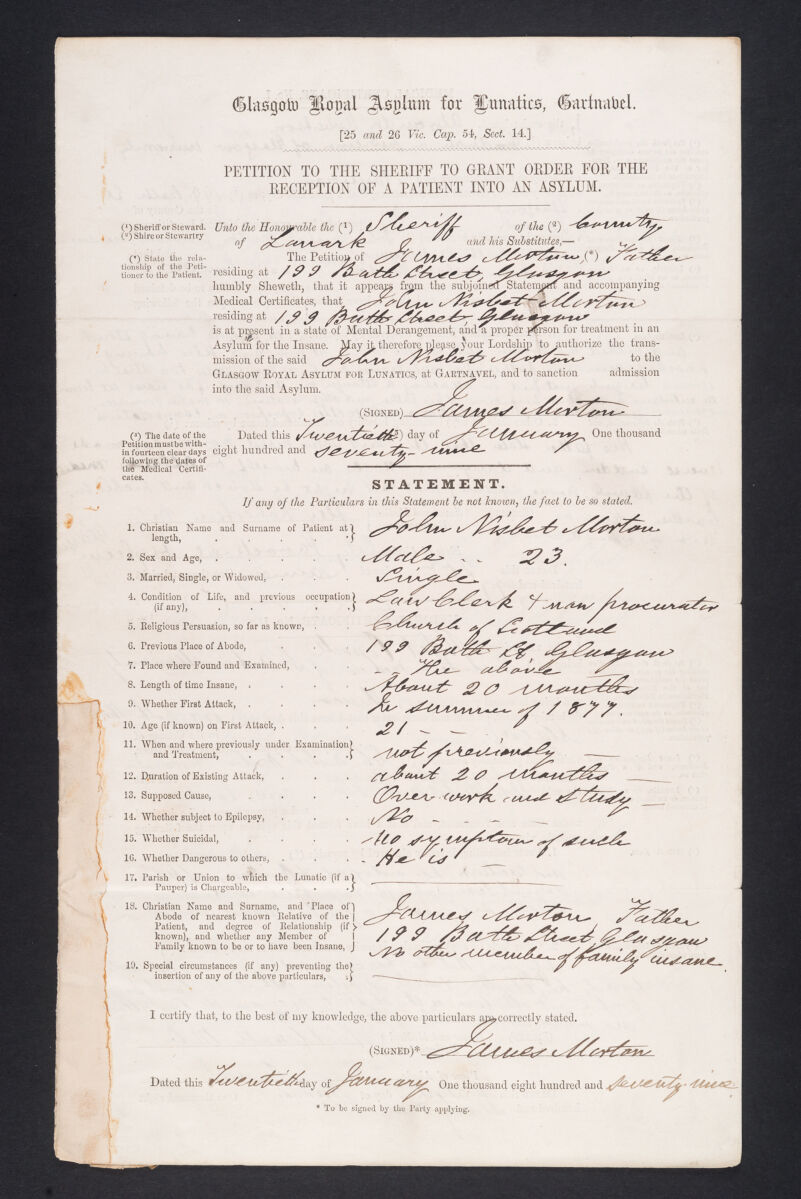 Glasgow Royal Asylum for Lunatics, Gartnavel.
[25 and 26 Vic. Cap. 54, Sect. 14.]
PETITION TO THE SHERIFF TO GRANT ORDER FOR THE
RECEPTION OF A PATIENT INTO AN ASYLUM.
(¹) Sheriff or Steward.
(²) Shire or Stewartry
(*) State the rela-
tionship of the Peti-
tioner to the Patient.
Unto the Honourable the (¹) Sheriff of the (²) County
of Lanark and his Substitutes,—
The Petition of James Morton (*) Father
residing at 199 Bath Street, Glasgow
humbly Sheweth, that it appears from the subjoined Statement and accompanying
Medical Certificates, that John Nisbet Morton
residing at 199 Bath Street Glasgow
is at present in a state of Mental Derangement, and a proper person for treatment in an
Asylum for the Insane. May it therefore please your Lordship to authorize the trans-
mission of the said John Nisbet Morton to the
GLASGOW ROYAL ASYLUM FOR LUNATICS, at GARTNAVEL, and to sanction admission
into the said Asylum.
(SIGNED) James Morton
(³) The date of the
Petition must be with-
in fourteen clear days
following the dates of
the Medical Certifi-
cates.
Dated this Twentieth (³) day of January One thousand
eight hundred and seventy-nine
STATEMENT.
If any of the Particulars in this Statement be not known, the fact to be so stated.
1. Christian Name and Surname of Patient at length, John Nisbet Morton
2. Sex and Age, Male 23.
3. Married, Single, or Widowed, Single
4. Condition of Life, and previous occupation (if any), Law Clerk & now procurator
5. Religious Persuasion, so far as known, Church of Scotland
6. Previous Place of Abode, 199 Bath St Glasgow
7. Place where Found and Examined, The above
8. Length of time Insane, About 20 months
9. Whether First Attack, In summer of 1877.
10. Age (if known) on First Attack, 21
11. When and where previously under Examination and Treatment, not previously
12. Duration of Existing Attack, about 20 months
13. Supposed Cause, Over work and Study
14. Whether subject to Epilepsy, No
15. Whether Suicidal, No symptom of such
16. Whether Dangerous to others, He is
17. Parish or Union to which the Lunatic (if a Pauper) is Chargeable,
18. Christian Name and Surname, and Place of
Abode of nearest known Relative of the
Patient, and degree of Relationship (if
known), and whether any Member of
Family known to be or to have been Insane,
James Morton Father
199 Bath Street Glasgow
No other member of family insane
19. Special circumstances (if any) preventing the
insertion of any of the above particulars,
I certify that, to the best of my knowledge, the above particulars are correctly stated.
(SIGNED)* James Morton
Dated this Twentieth day of January One thousand eight hundred and seventy-nine
* To be signed by the Party applying.